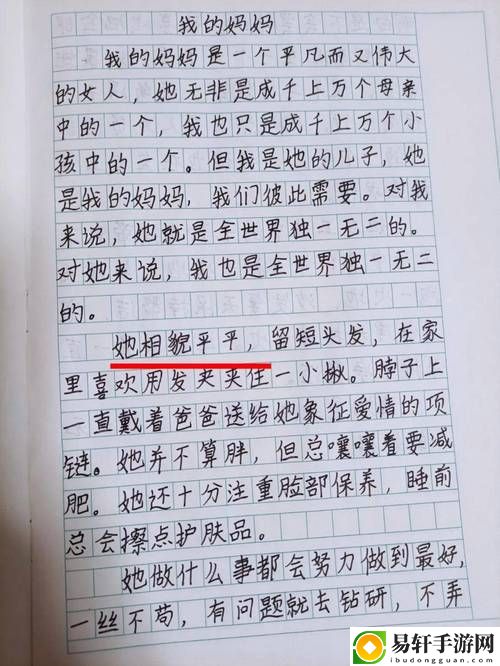 我的妈妈
我的妈妈是一个平凡而又伟大
的女人，她无非是成千上万个母亲
中的一个，我也只是成千上万个小
孩中的一个。但我是她的儿子，她
是我的妈妈，我们彼此需要。对我
来说，她就是全世界独一无二的。
对她来说，我也是全世界独一无二
的。
她相貌平平，留短头发，在家
里喜欢用发夹夹住一小揪。脖子上
一直戴着爸爸送给她象征爱情的项
链。她并不算胖，但总嚷嚷着要减
肥。她还十分注重脸部保养，睡前
总会擦点护肤品。
她做什么事都会努力做到最好，
一丝不苟，有问题就去钻研，不弄
易轩手游网
ibudongbuyer.com